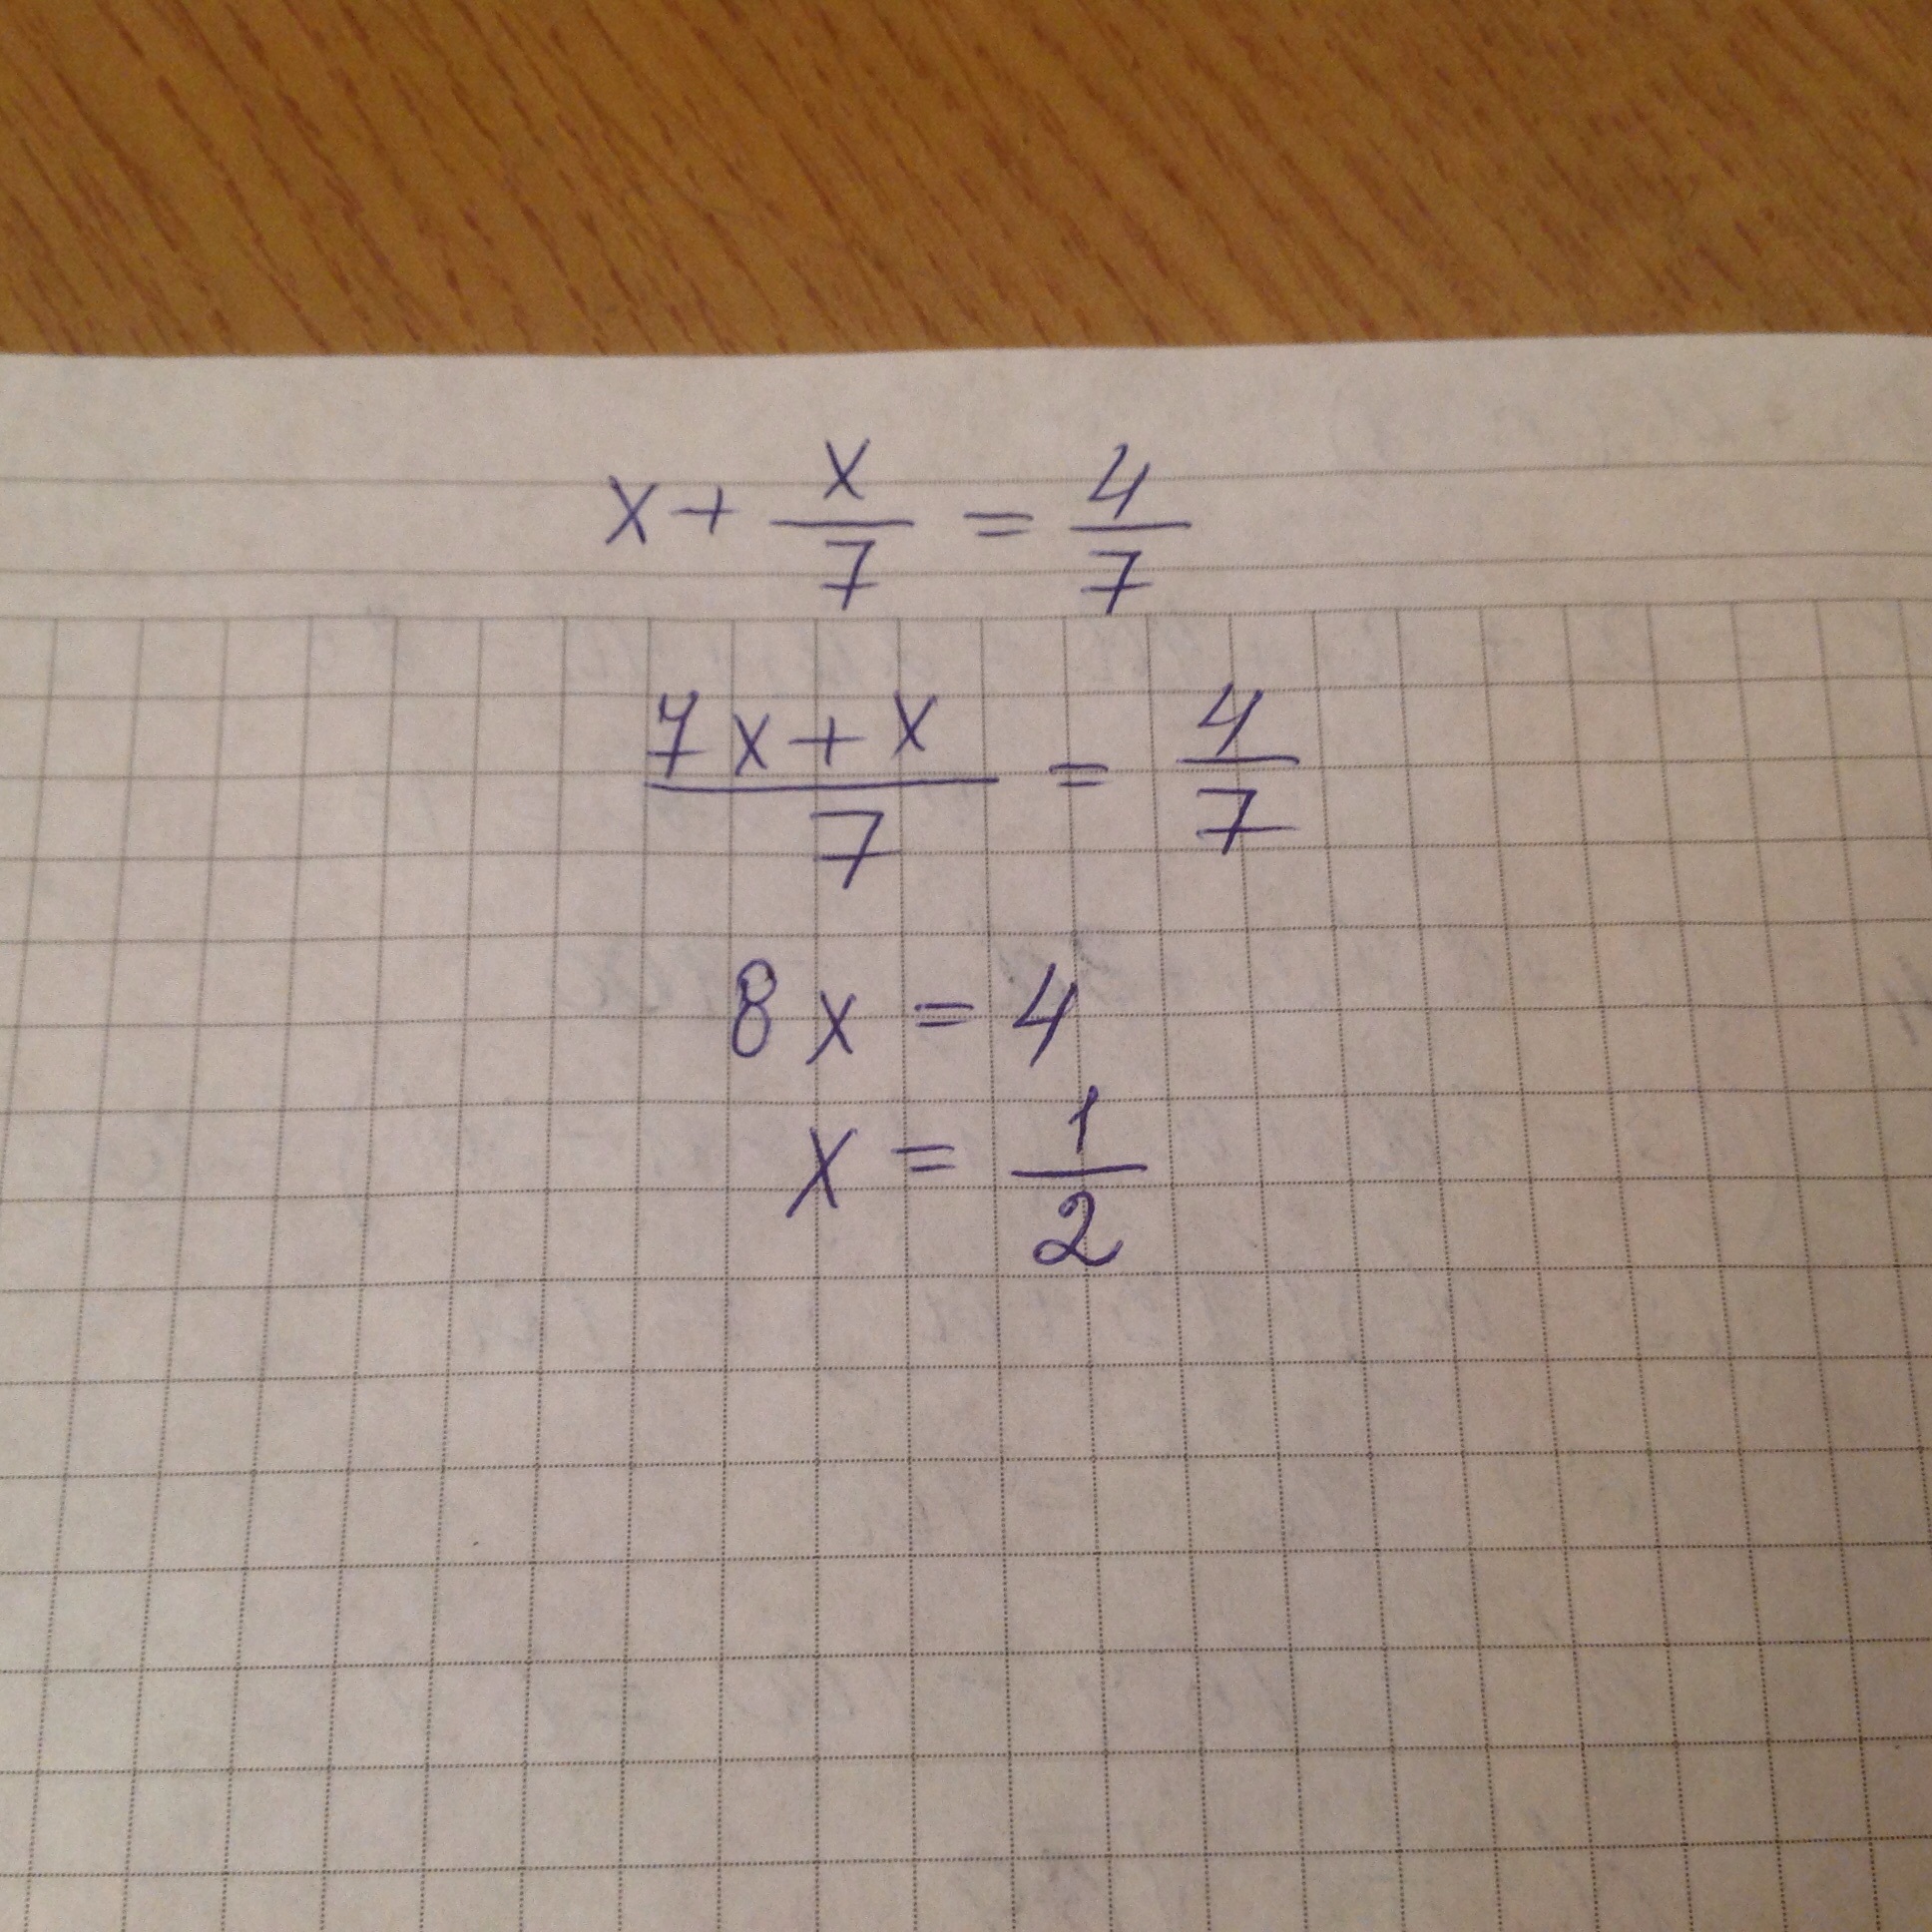 x + x/7 = 4/7
7x + x/7 = 4/7
8x = 4
x = 1/2